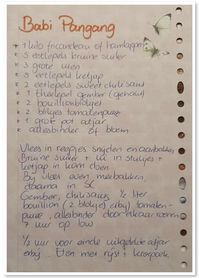 Babi Pangang
* 1 kilo fricandeau of hamlappen
* 3 eetlepels bruine suiker
* 3 grote uien
* 3 eetlepels ketjap
* 2 eetlepels sweet chili saus
* 1 theelepel gember (gehakt)
* 2 bouillonblokjes
* 2 blikjes tomatenpuree
* 1 grote pot atjar
* allesbinder of bloem
Vlees in reepjes snijden en aanbakken.
Bruine suiker + ui in stukjes +
ketjap in kom doen
Bij vlees even meebakken,
daarna in SC
Gember, chilisaus, ½ liter
bouillon (2 blokjes erbij) tomaten-
puree, allesbinder door elkaar roeren
7 uur op low
½ uur voor einde uitgelekte atjar
erbij. Eten met rijst + kroepoek